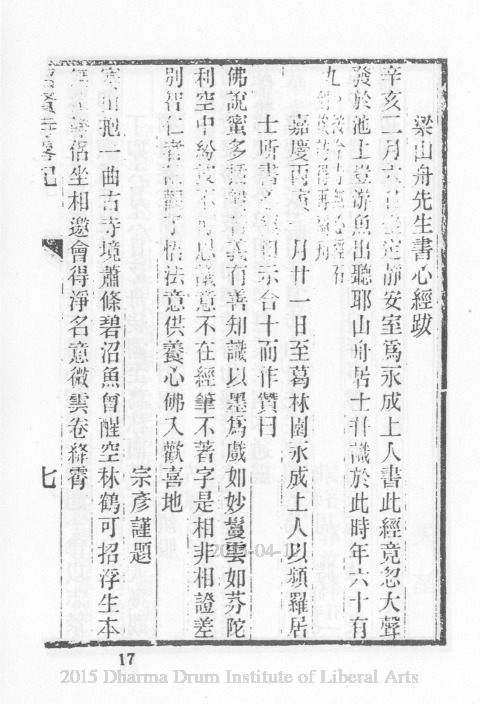 梁山舟先生書心經跋
辛亥二月六日定靜安室為永成上人書此經竟忽大聲
發於池上豈游魚出聽耶山舟居士幷識於此時年六十有
九
嘉慶丙寅 月廿一日至葛林園永成上人以頻羅居
士所書心經 示合十而作贊曰
佛說蜜多 義有善知識以墨為戲如妙鬘雲如芬陀
利空中紛 不可思議意不在經筆不著字是相非相證差
別智仁者 了悟法意供養心佛入歡喜地
宗彥謹題
一曲古寺境蕭條碧沼魚曾醒空林鶴可招浮生本
侶坐相邀會得淨名意微雲卷絳霄
寺畧記
七
17
2015 Dharma Drum Institute of Liberal Arts